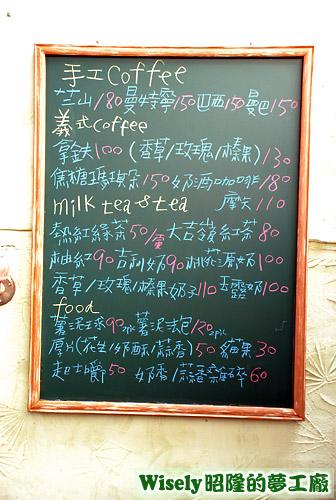 手工Coffee
芝山180曼特寧150巴西150曼巴150
義式Coffee
拿鐵100(香草/玫瑰/榛果)130
焦糖瑪琪朵150奶酒咖啡180
milk tea & tea 摩天110
熱紅綠茶50/壺 大吉嶺紅茶80
柚紅90吉利奶90桃花源奶100
香草/玫瑰/榛果奶子110玉露奶100
food
薯泥球90 薯泥沙拉120
厚片(花生/奶酥/蒜香)50 貓果30
起士嚼50 奶香/蒜語雜碎60
Wisely昭隆的夢工廠